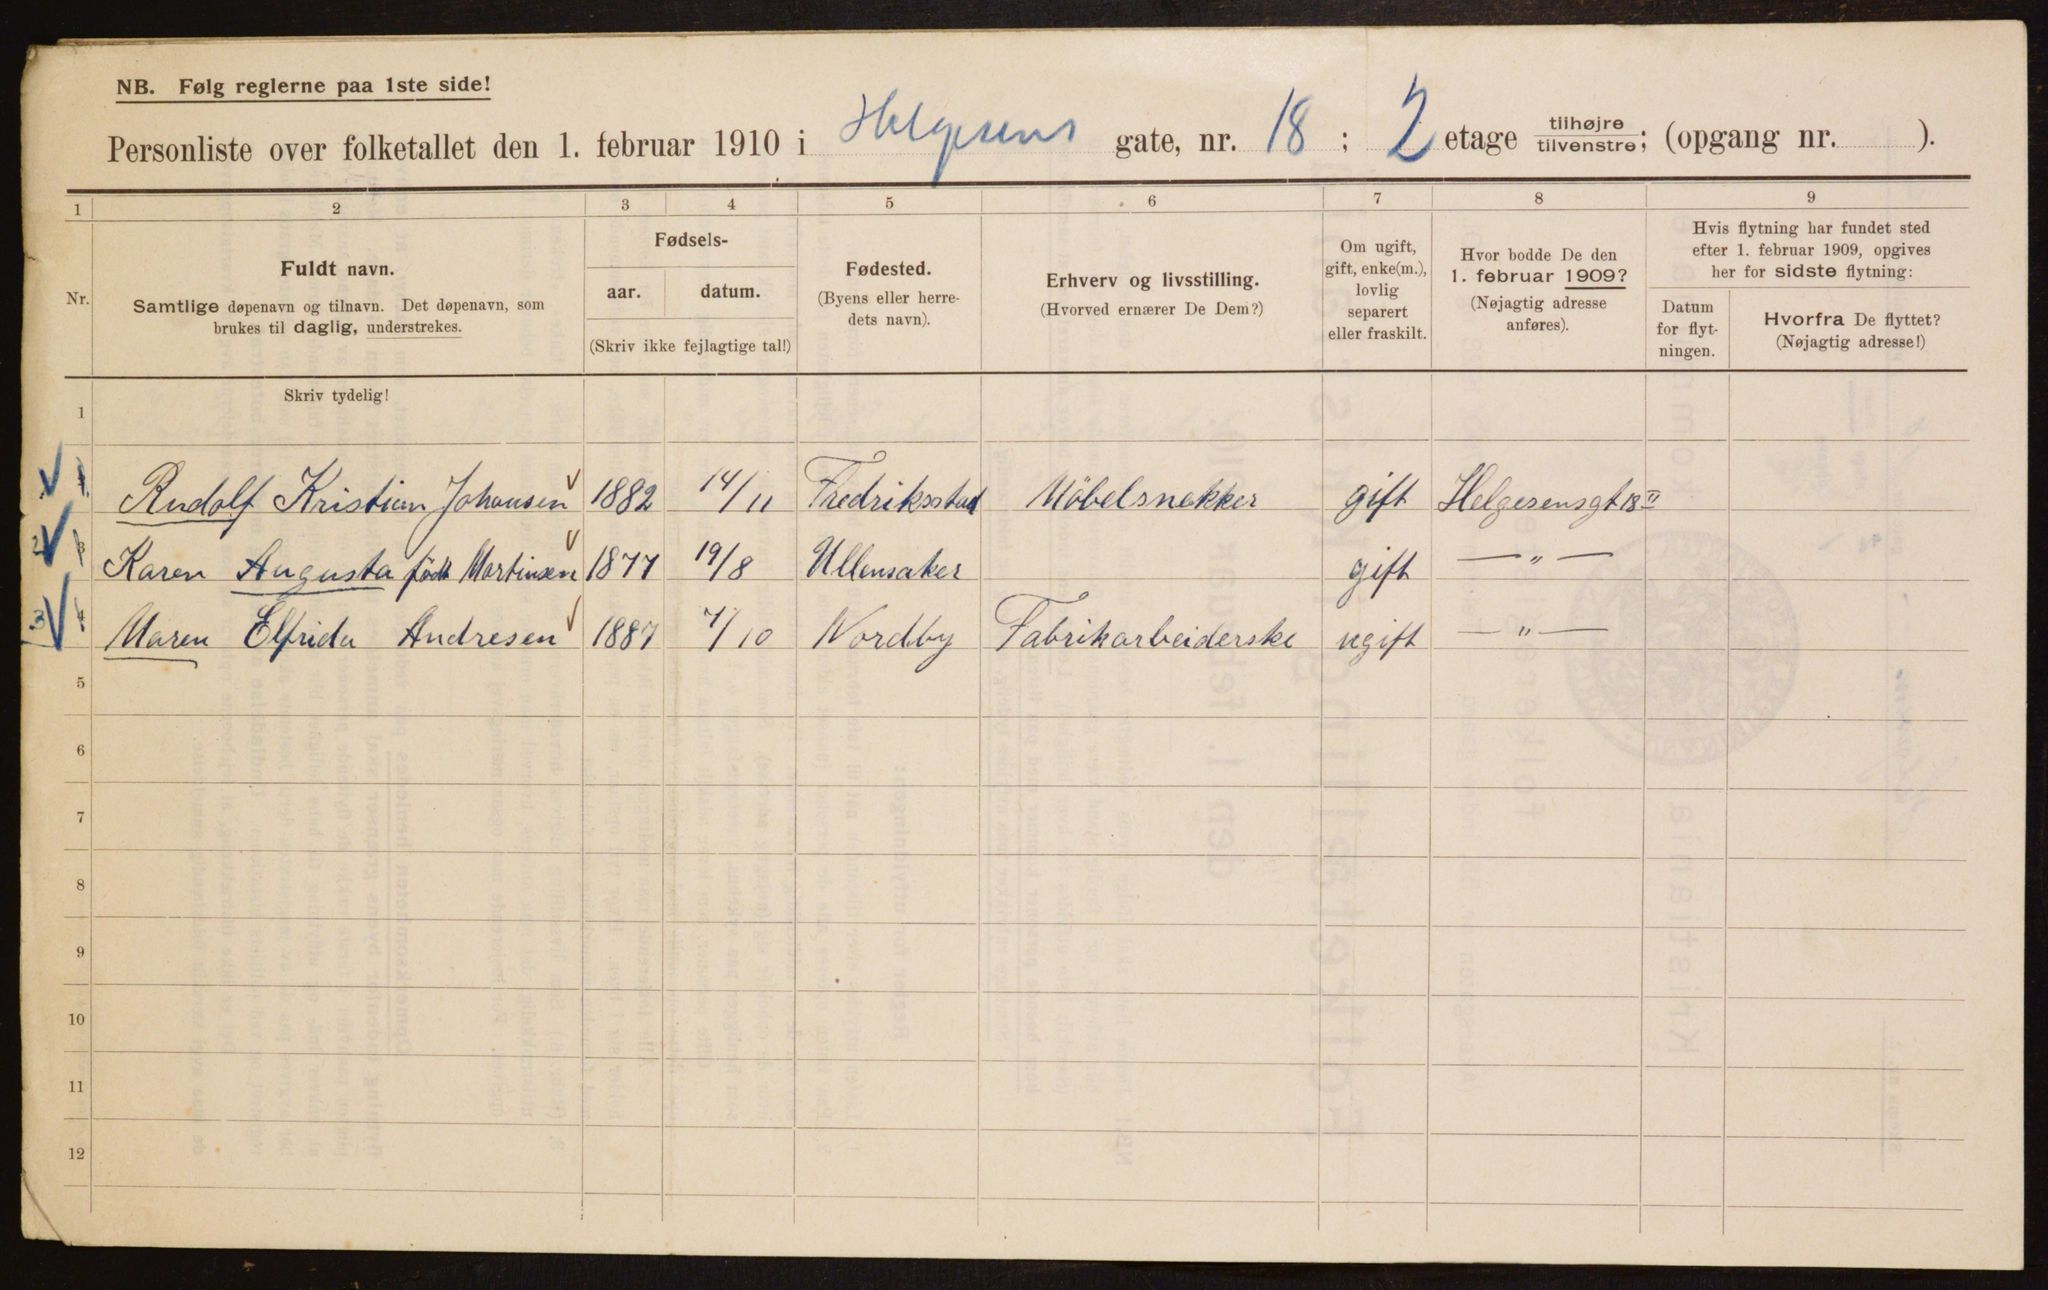 NB. Følg reglerne paa 1ste side!
Personliste over folketallet den 1. februar 1910 i Helgesens gate, nr. 18 ; 2 etage tilhøjre tilvenstre; (opgang nr. ).
1 2 3 4 5 6 7 8 9
Nr.
Fuldt navn.
Samtlige døpenavn og tilnavn. Det døpenavn, som
brukes til daglig, understrekes.
Fødsels-
aar. datum.
(Skriv ikke fejlagtige tal!)
Fødested.
(Byens eller herre-
dets navn).
Erhverv og livsstilling.
(Hvorved ernærer De Dem?)
Om ugift,
gift, enke(m.),
lovlig
separert
eller fraskilt.
Hvor bodde De den
1. februar 1909?
(Nøjagtig adresse
anføres).
Hvis flytning har fundet sted
efter 1. februar 1909, opgives
her for sidste flytning:
Datum
for flyt-
ningen.
Hvorfra De flyttet?
(Nøjagtig adresse!)
Skriv tydelig!
1
1 Rudolf Kristian Johansen 1882 14/11 Fredriksstad Möbelsnekker gift Helgesensgt 18 II
2 3 Karen Augusta født Martinsen 1877 19/8 Ullensaker gift — " —
3 4 Maren Elfrida Andresen 1887 7/10 Nordby Fabrikarbeiderske ugift — " —
5
6
7
8
9
10
11
12